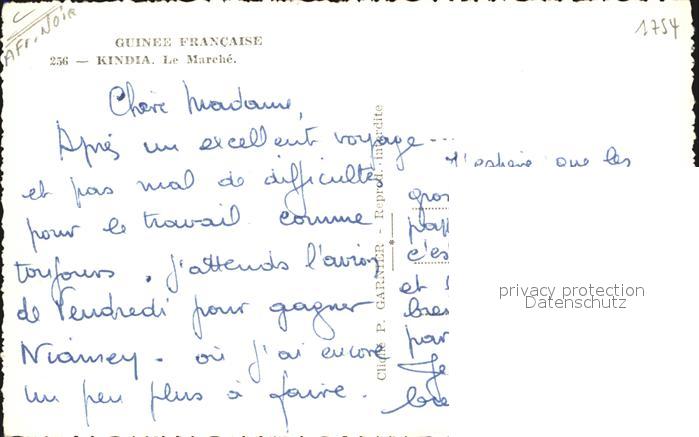 AFR. NOIR
1754
GUINÉE FRANÇAISE
256 — KINDIA. Le Marché.
Chère Madame,
Après un excellent voyage ...
et pas mal de difficultés
pour le travail comme
toujours. J'attends l'avion
de Vendredi pour gagner
Niamey - où j'ai encore
un peu plus à faire.
Cliché P. GARNIER - Reprod. interdite
J'espère que les
gros
c'es
et
par
Je
privacy protection
Datenschutz